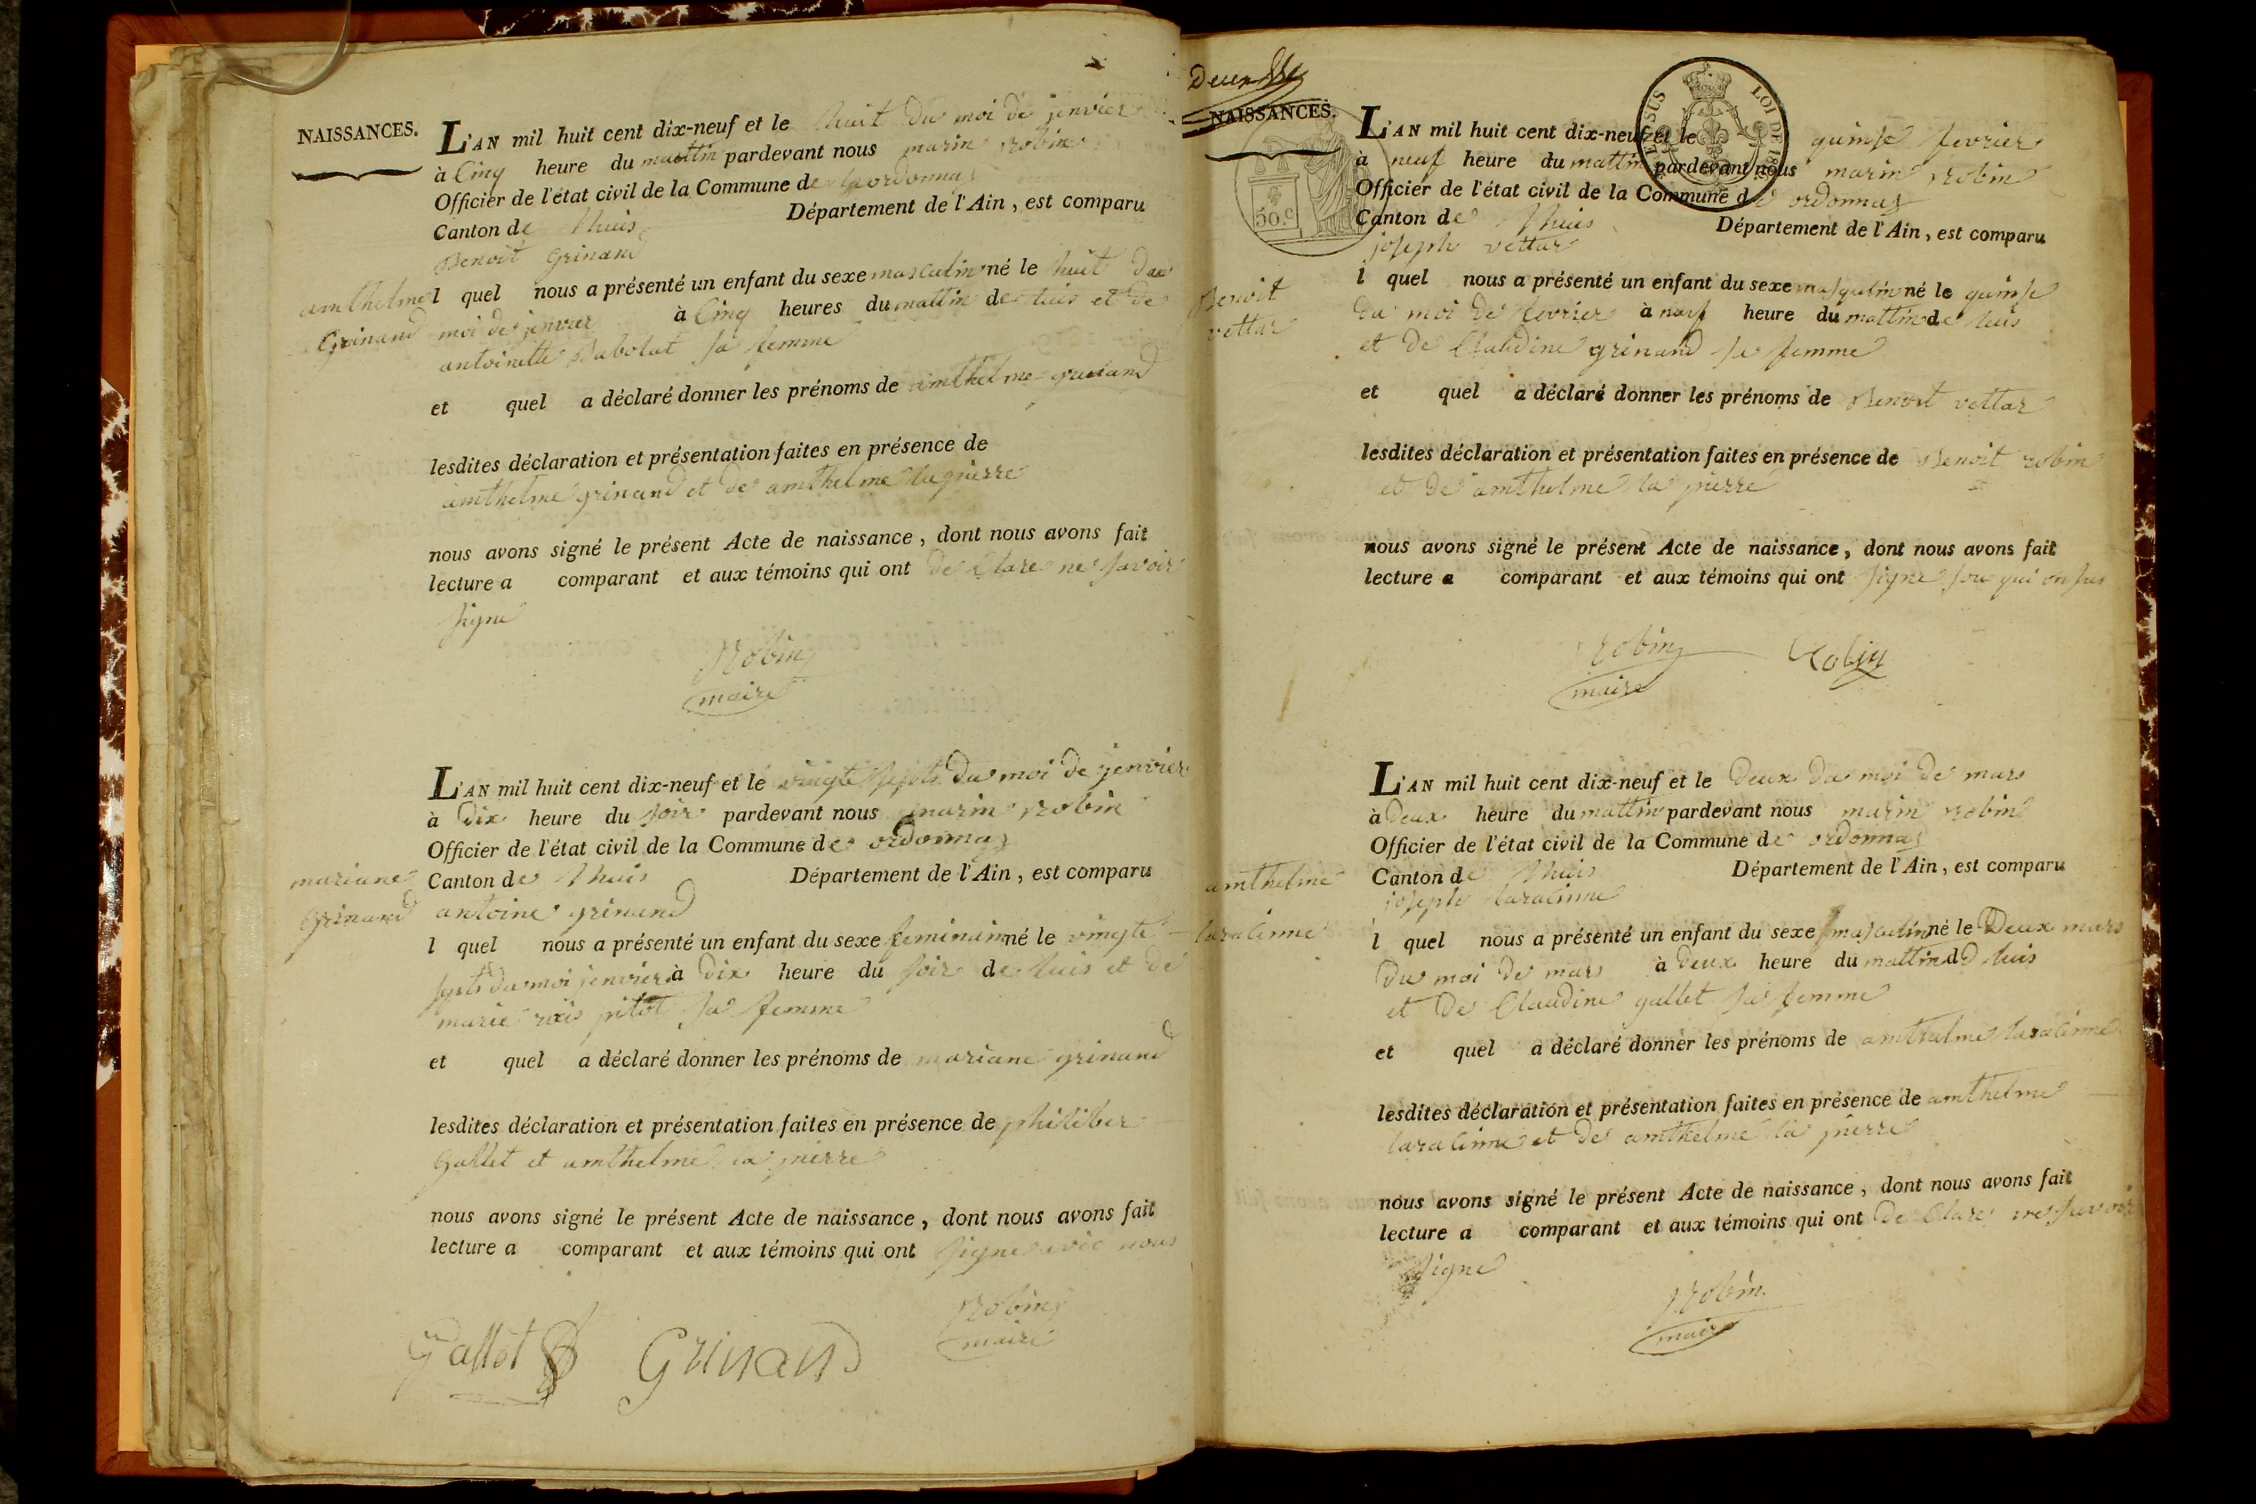 NAISSANCES.
L'AN mil huit cent dix-neuf et le huit du moi de jenvier
à Cinq heure du mattin pardevant nous marin robin
Officier de l'état civil de la Commune de ordonnas
Canton de lhuis Département de l'Ain, est comparu
Benoit Grinand
l quel nous a présenté un enfant du sexe masculin né le huit du
moi de jenvier à Cinq heures du mattin de luis et de
antoinette sa femme
amthelme
Grinand
et quel a déclaré donner les prénoms de amthelme grinand
lesdites déclaration et présentation faites en présence de
amthelme grinand et de amthelme lapierre
nous avons signé le présent Acte de naissance, dont nous avons fait
lecture a comparant et aux témoins qui ont de Clare ne savoir
signe
Robin
maire
L'AN mil huit cent dix-neuf et le vingte septs du moi de jenvier
à Dix heure du soir pardevant nous marin robin
Officier de l'état civil de la Commune de ordonnas
Canton de lhuis Département de l'Ain, est comparu
antoine grinand
mariane
grinand
l quel nous a présenté un enfant du sexe feminain né le vingte
septs du moi jenvier à Dix heure du soir de luis et de
marie pitot sa femme
et quel a déclaré donner les prénoms de mariane grinand
lesdites déclaration et présentation faites en présence de philiber
Gallet et amthelme la pierre
nous avons signé le présent Acte de naissance, dont nous avons fait
lecture a comparant et aux témoins qui ont signe avec nous
Robin
maire
Gallet Grinand
Deux
NAISSANCES.
50.c
LOI DE
L'AN mil huit cent dix-neuf et le quinse fevrier
à neuf heure du mattin pardevant nous marin robin
Officier de l'état civil de la Commune de ordonnas
Canton de lhuis Département de l'Ain, est comparu
joseph vettar
l quel nous a présenté un enfant du sexe masqulin né le quinse
du moi de fevrier à neuf heure du mattin de luis
et de Claudine grinand sa femme
Benoit
vettar
et quel a déclaré donner les prénoms de Benoit vettar
lesdites déclaration et présentation faites en présence de Benoit robin
et de amthelme la pierre
nous avons signé le présent Acte de naissance, dont nous avons fait
lecture a comparant et aux témoins qui ont signe sou qui on sus
robin
maire
Robin
L'AN mil huit cent dix-neuf et le Deux du moi de mars
à Deux heure du mattin pardevant nous marin robin
Officier de l'état civil de la Commune de ordonnas
Canton de lhuis Département de l'Ain, est comparu
joseph laracinne
amthelme
laracinne
l quel nous a présenté un enfant du sexe masculin né le Deux mars
du moi de mars à deux heure du mattin de luis
et de Claudine gallet sa femme
et quel a déclaré donner les prénoms de amthelme laracinne
lesdites déclaration et présentation faites en présence de amthelme
laracinne et de amthelme la pierre
nous avons signé le présent Acte de naissance, dont nous avons fait
lecture a comparant et aux témoins qui ont de Clare ne savoir
signe
Robin
maire